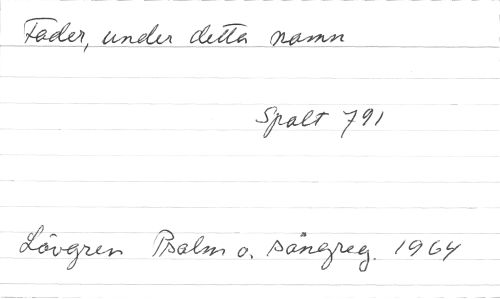 Fader, under detta namn
Spalt 791
Lövgren Psalm o. sångreg. 1964